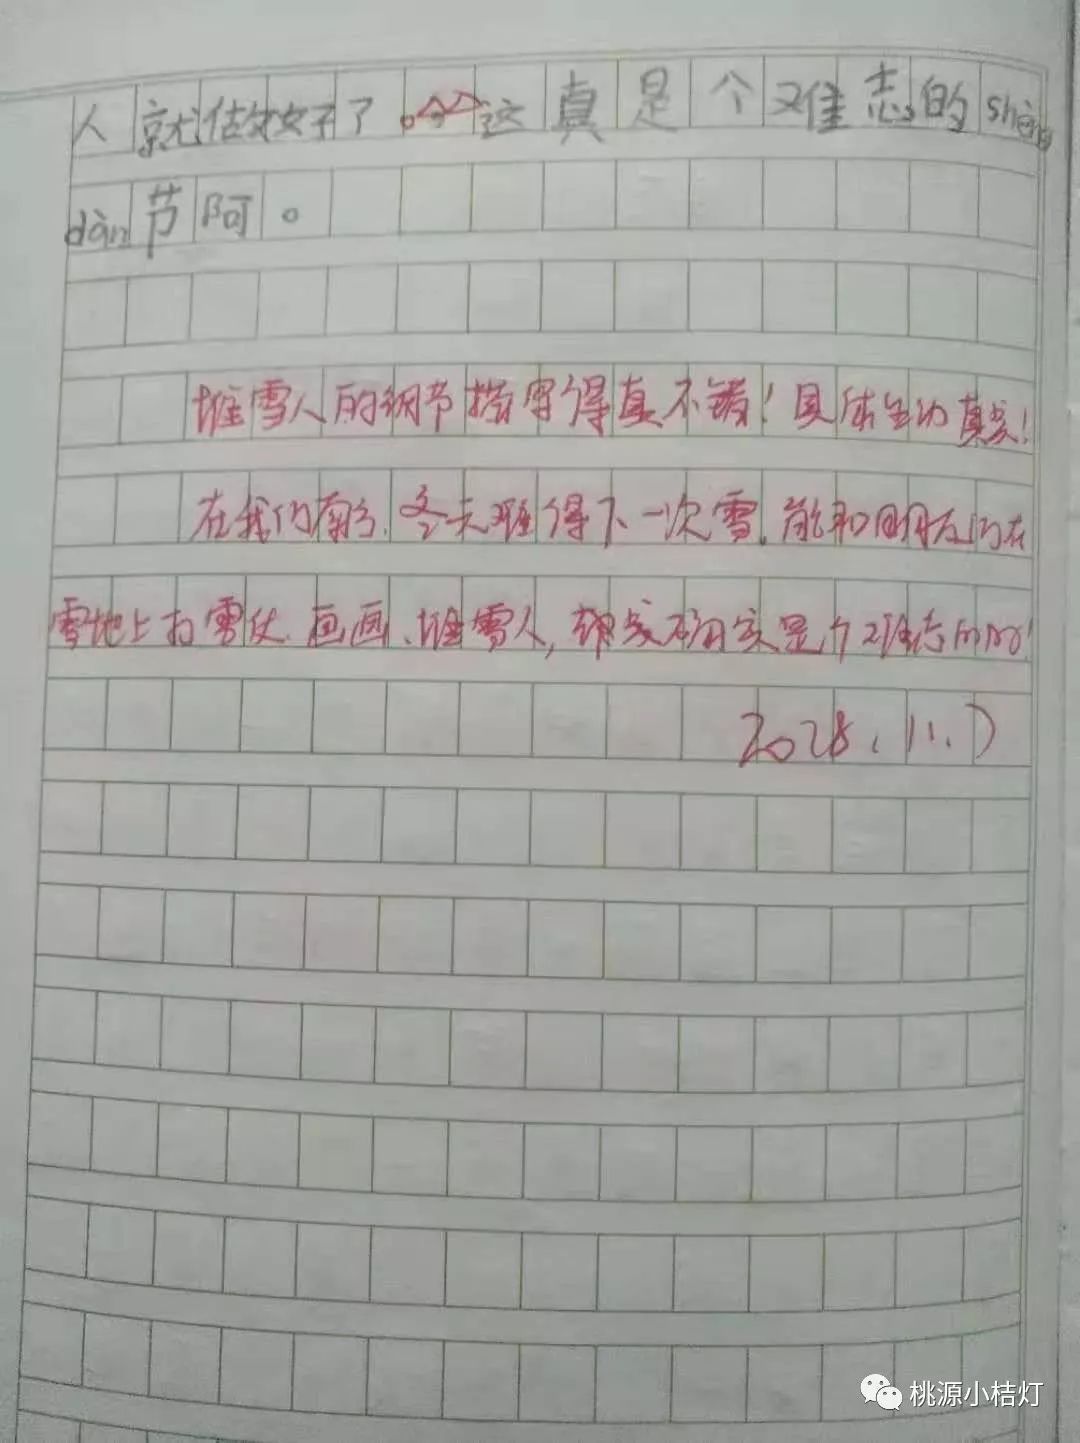 人就做好了。这真是个难忘的shèng
dàn节阿。
堆雪人的细节描写得真不错！具体生动真实！
在我们南方，冬天难得下一次雪，能和朋友们在
雪地上打雪仗、画画、堆雪人，确实是个难忘的
2028.11.7
桃源小桔灯